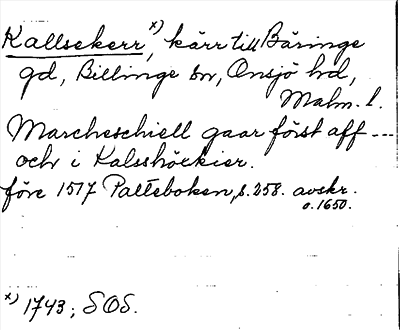 Kallsekerr x), kärr till Bäringe
gd, Billinge sn, Onsjö hd,
Malm. l.
Marcheschiell gaar först aff ---
och i Kalsshöekier.
före 1517 Palteboken, s. 258. avskr.
o. 1650.
x) 1743; SOS.